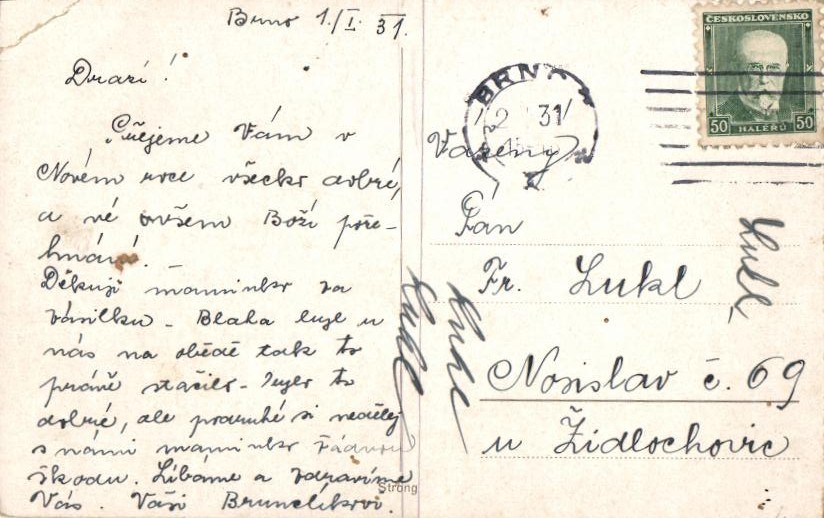 Brno 1./I. 31.
Drazí!
Přejeme Vám v
Novém roce všecko dobré,
a ve všem Boží pože-
hnání.
Děkuji maminko za
zásilku - Blaha byl u
nás na obědě tak to
právě stačilo - bylo to
dobré, ale podruhé si nedělej
s námi maminko žádnou
škodu. Líbáme a zdravíme
Vás. Vaši Brunclíkovi.
Strong
ČESKOSLOVENSKO
50 50
HALÉŘŮ
BRNO
2 31
Vážený
Pán
Fr. Lukl
Nosislav č. 69
u Židlochovic
Lukl
Lukl
Lukl